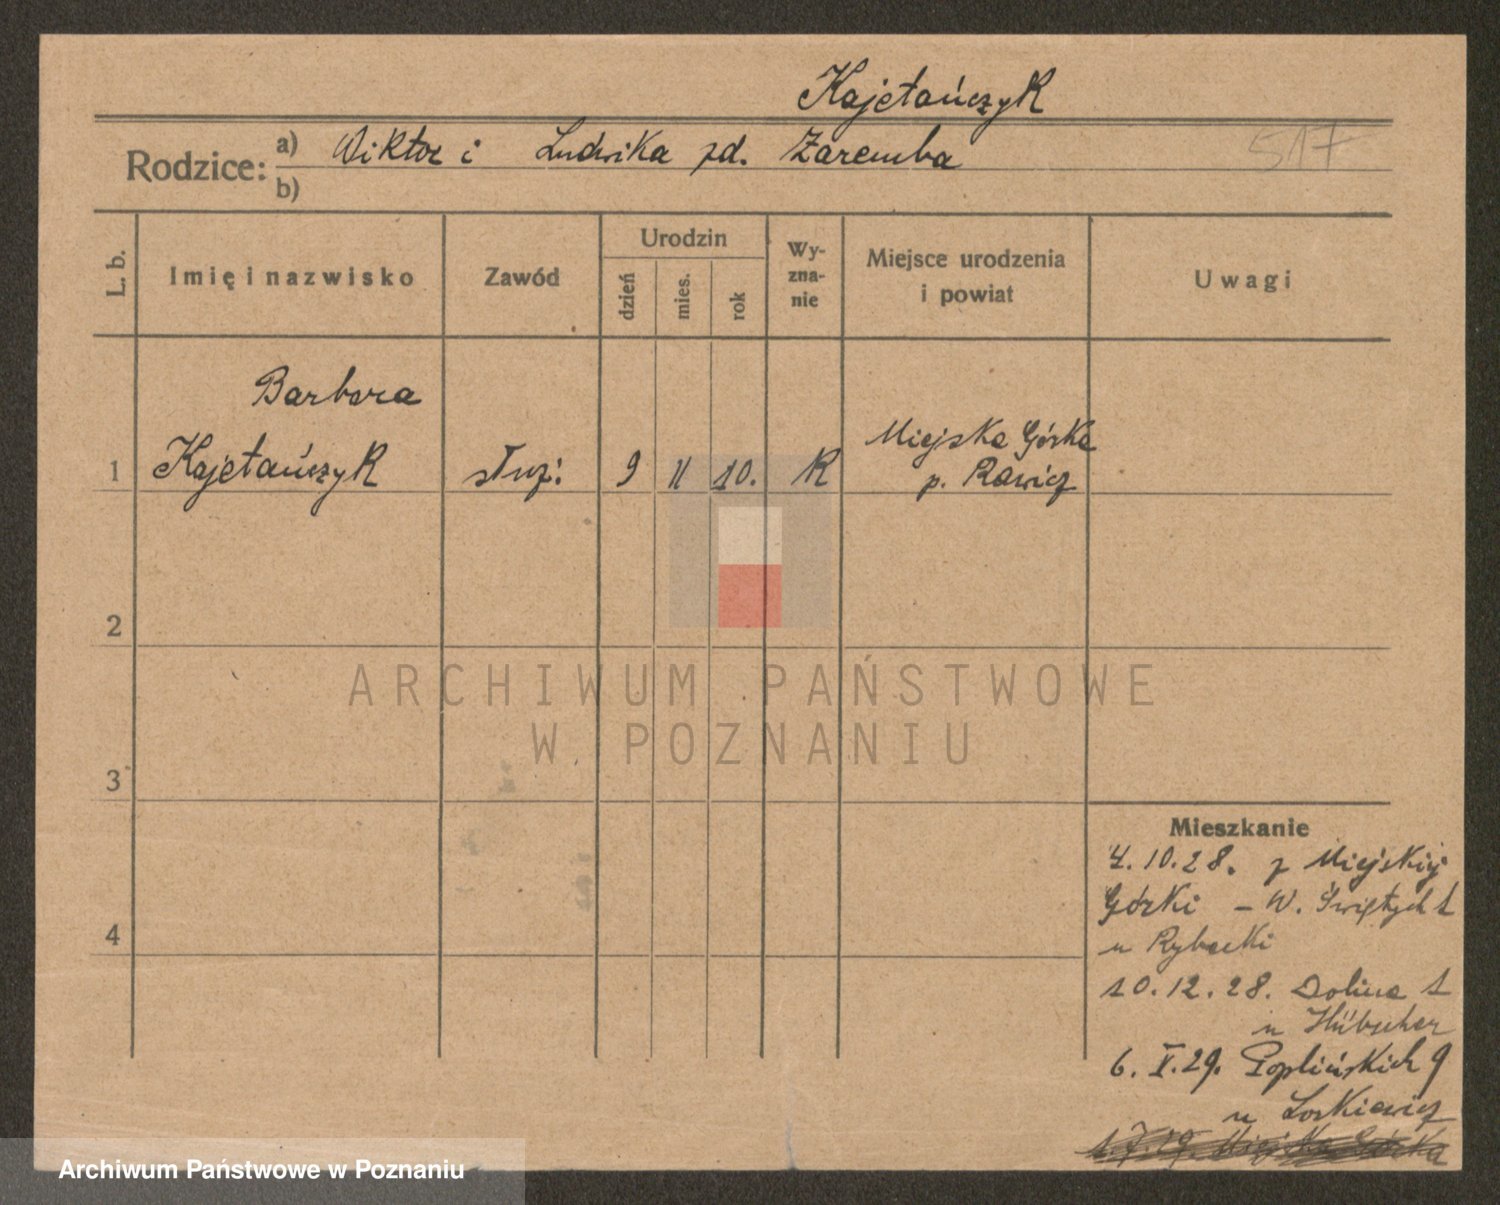 Kajetańczyk
517
Rodzice: a) Wiktor i Ludwika zd. Zaremba
b)
L. b.
Imię i nazwisko
Zawód
Urodzin
dzień
mies.
rok
Wy-
zna-
nie
Miejsce urodzenia
i powiat
Uwagi
Barbara
1 Kajetańczyk służ: 9 II 10. R Miejska Górka
p. Rawicz
2
3
4
ARCHIWUM PAŃSTWOWE
W POZNANIU
Mieszkanie
4.10.28. z Miejskiej
Górki – W. Świętych 1
u Rybacki
10.12.28. Dolina 1
u Hübscher
6. V. 29. Poplińskich 9
u Loskiewicz
Miejska Górka
Archiwum Państwowe w Poznaniu